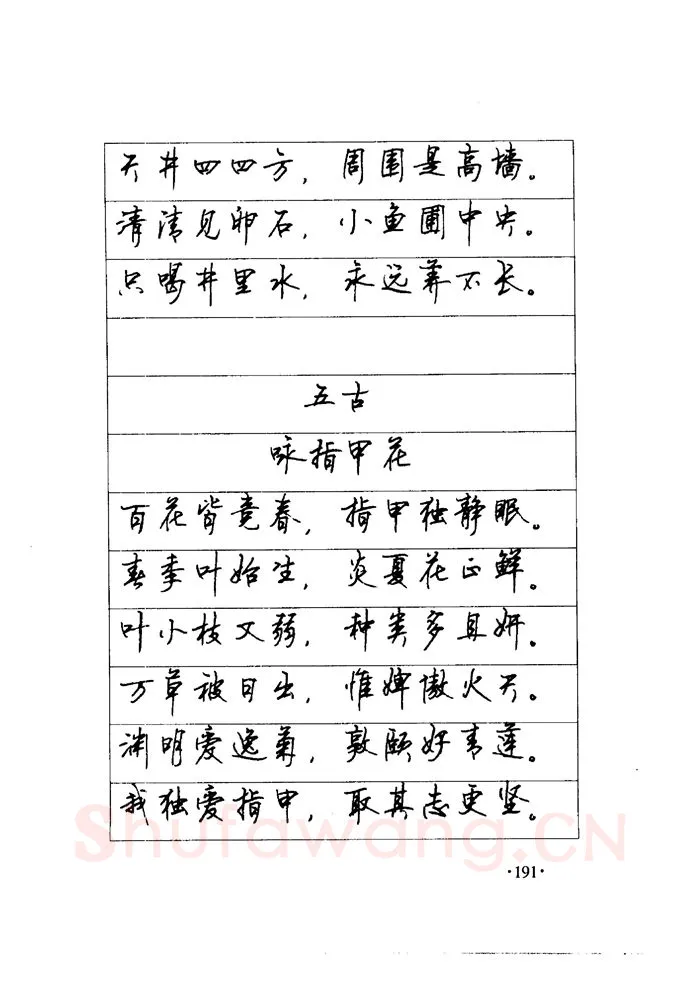 天井四四方，周围是高墙。
清清见卵石，小鱼圃中央。
只喝井里水，永远养不长。
五古
咏指甲花
百花皆竞春，指甲独静眠。
春季叶始生，炎夏花正鲜。
叶小枝又弱，种类多且妍。
万草被日出，惟婢傲火天。
渊明爱逸菊，敦颐好青莲。
我独爱指甲，取其志更坚。
Shufawang.CN
·191·